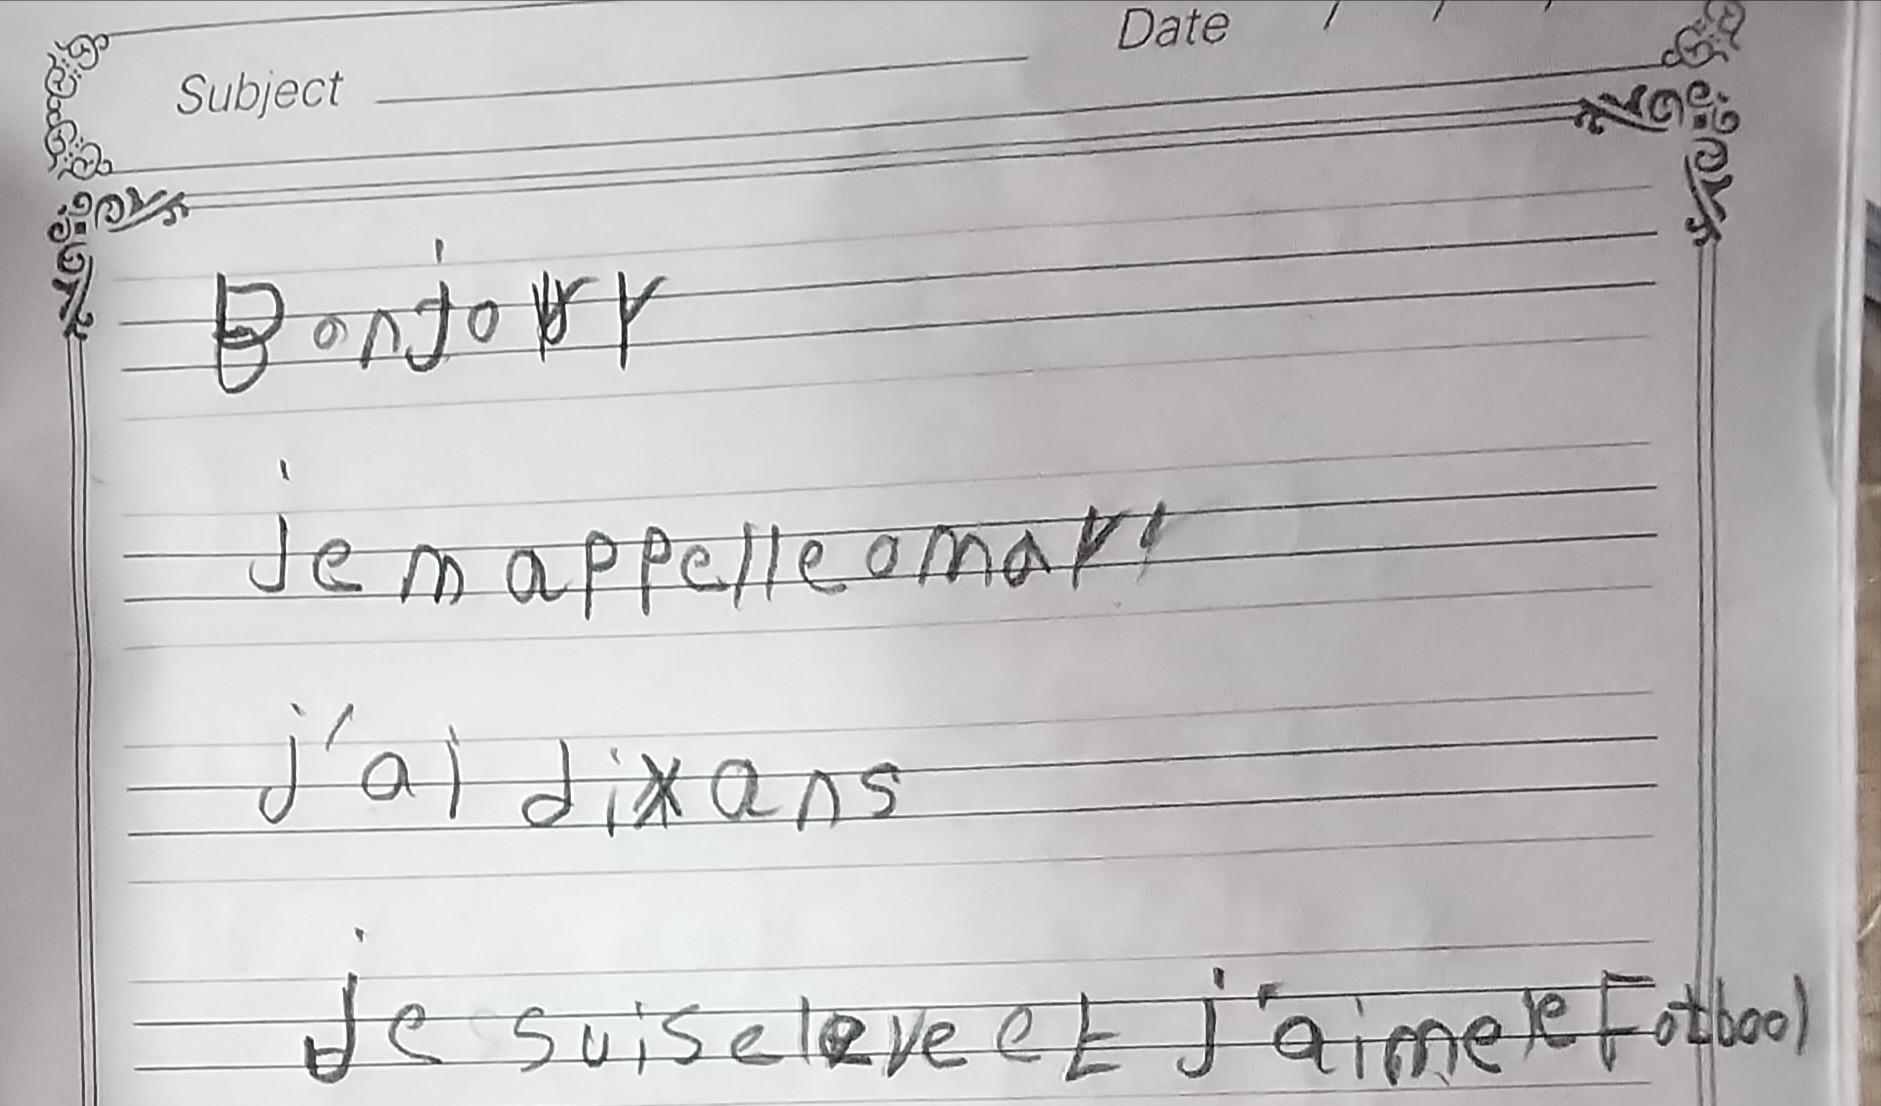 Date / /
Subject
Bonjour
je m appelle omar
j'ai dix ans
je suis eleve et j'aime le Fotbool